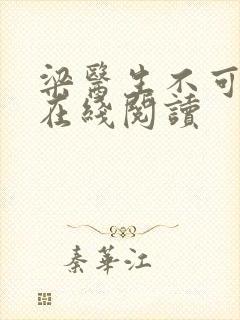 梁醫生不可
在綫閱讀
秦華江